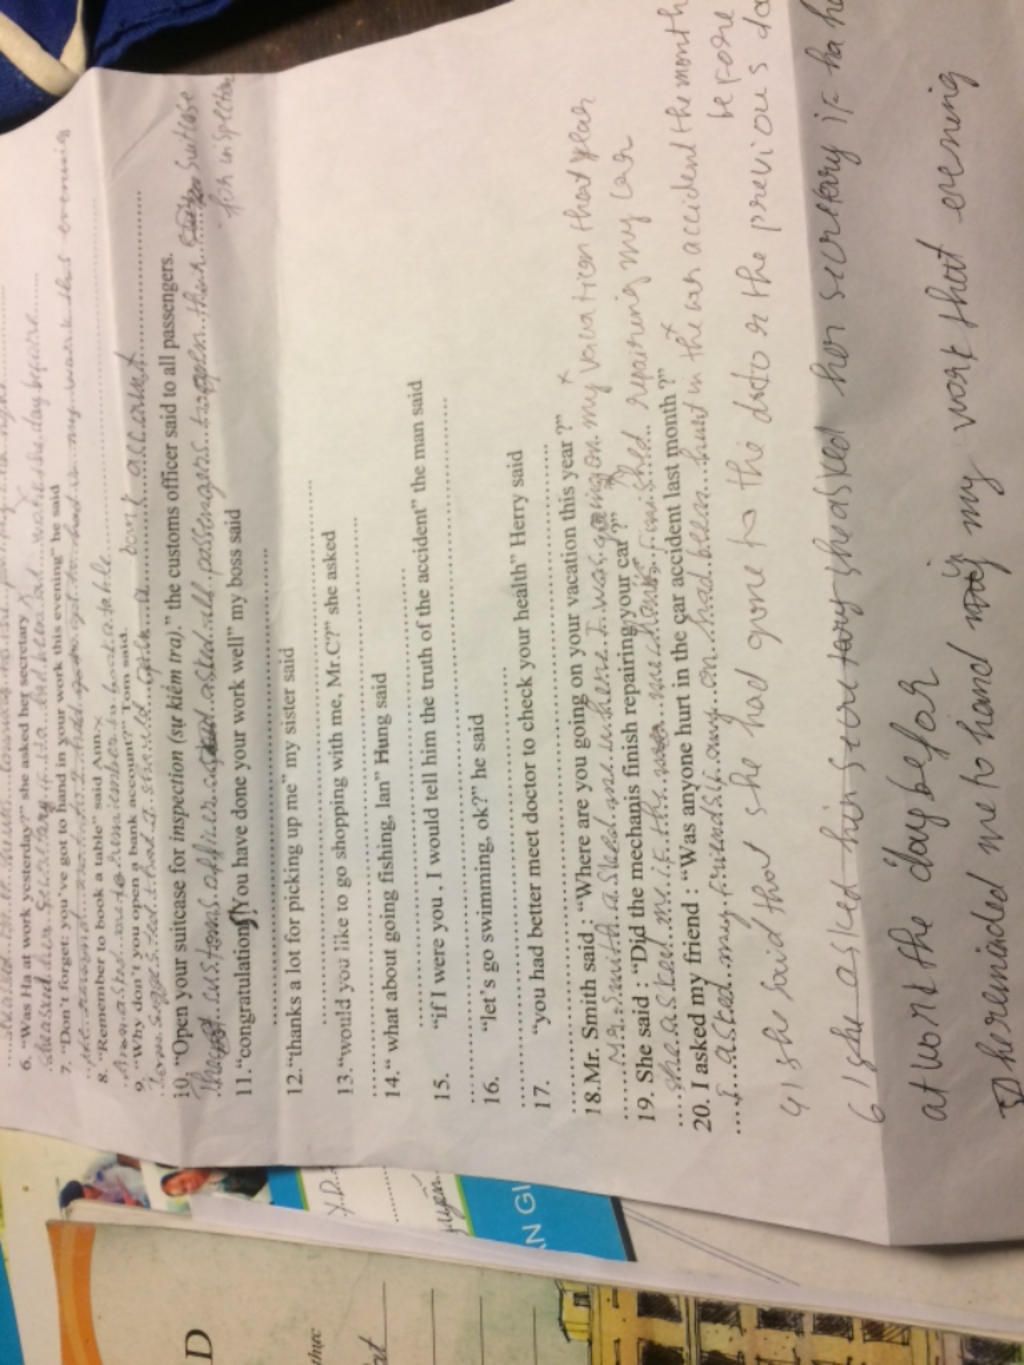 6. “Was Ha at work yesterday?” she asked her secretary
she asked her secretary if Ha had been at work the day before
7. “Don't forget: you've got to hand in your work this evening” he said
my work that evening
8. “Remember to book a table” said Ann.
Ann asked me to remember to book a table
9. “Why don't you open a bank account?” Tom said.
Tom suggested that I should open a bank account
10. “Open your suitcase for inspection (sự kiểm tra).” the customs officer said to all passengers.
The customs officer asked all passengers to open their suitcase
for inspection
11.“congratulation! You have done your work well” my boss said
12.“thanks a lot for picking up me” my sister said
13.“would you like to go shopping with me, Mr.C?” she asked
14.“ what about going fishing, lan” Hung said
15. “if I were you , I would tell him the truth of the accident” the man said
16. “let's go swimming, ok?” he said
17. “you had better meet doctor to check your health” Herry said
18.Mr. Smith said : “Where are you going on your vacation this year ?”
Mr. Smith asked me where I was going on my vacation that year
19. She said : “Did the mechanis finish repairing your car ?”
she asked me if the mechanis finished repairing my car
20. I asked my friend : “Was anyone hurt in the car accident last month ?”
I asked my friend if any on had been hurt in the car accident the month
before
4) she said that she had gone to the doctor the previous
6) she asked her secretary she asked her secretary if ha
at work the day before
he reminded me to hand my work that evening
Y.D.
AN GI
D